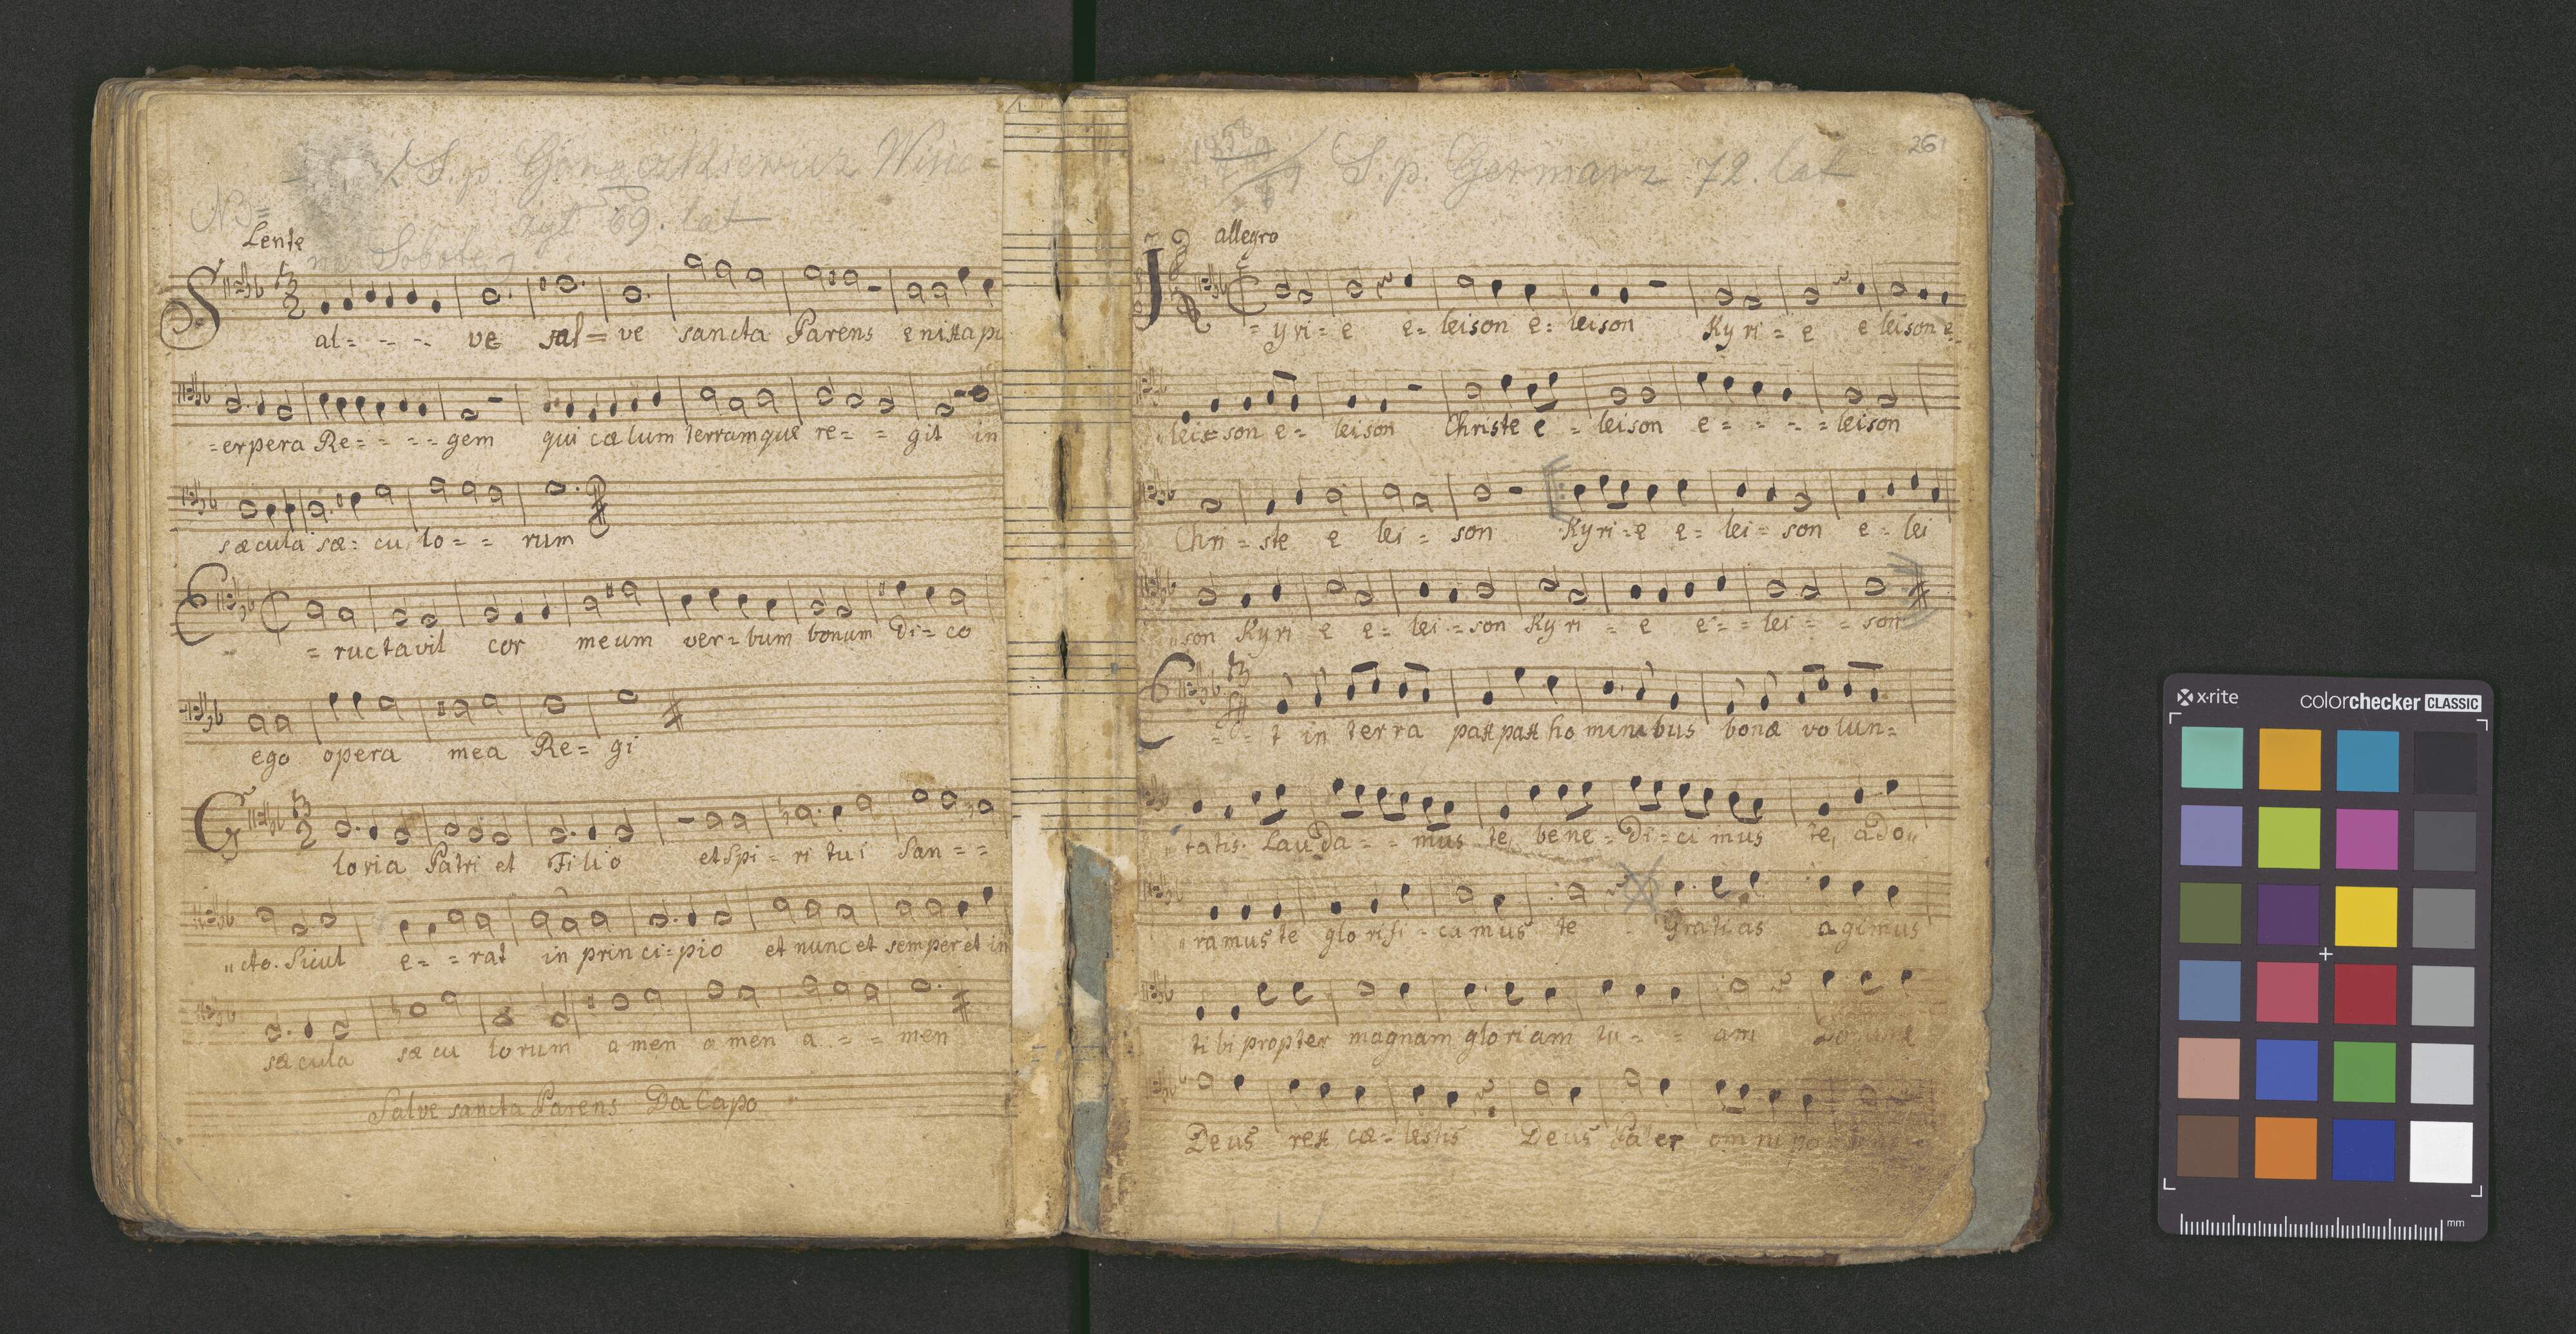 S.p. Winc=
żył 69. lat
NB=
Lente
na Sobotę
Sal= - - - ve sal= ve sancta Parens enixa pu
=erpera Re= = = =gem qui cælum terramque re= = git in
sæcula sæ= cu lo= = rum
E = ructavit cor meum ver=bum bonum Di=co
ego opera mea Re= gi
Gloria Patri et Filio et Spi= ri tui San= =
"cto. Sicut e= =rat in princi=pio et nunc et semper et in
sæcula sæ cu lorum amen amen a = = men
Salve sancta Parens Da Capo
S.p. Germanz 72. lat
261
allegro
K = yri=e e= leison e= leison Kyri=e e leison e=
"leis=son e= leison Christe e = leison e= = - = leison
Chri=ste e lei= son Kyri=e e= lei=son e=lei
"son Kyri e e= lei=son Kyri = e e= = lei= = son
E = t in terra pax pax hominibus bonæ volun=
"tatis. Lauda= = mus te, bene=Di=ci mus te, ado"
"ramus te glorifi=camus te Gratias agimus
tibi propter magnam gloriam tu= = am Domine
Deus rex cæ=lestis Deus Pater omnipo
x-rite colorchecker CLASSIC
mm